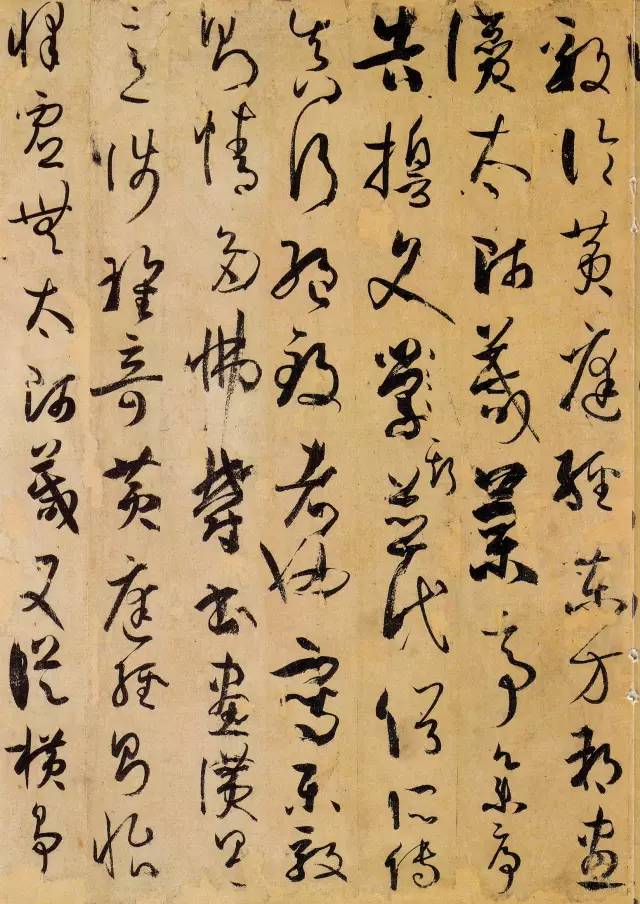 毅論黃庭經東方朔畫
讚太師箴蘭亭集序
告誓文學斯並代俗所傳
真行絕致者也寫樂毅
則情多怫鬱書畫讚則
意涉瓌奇黃庭經則怡
懌虛無太師箴又縱橫爭